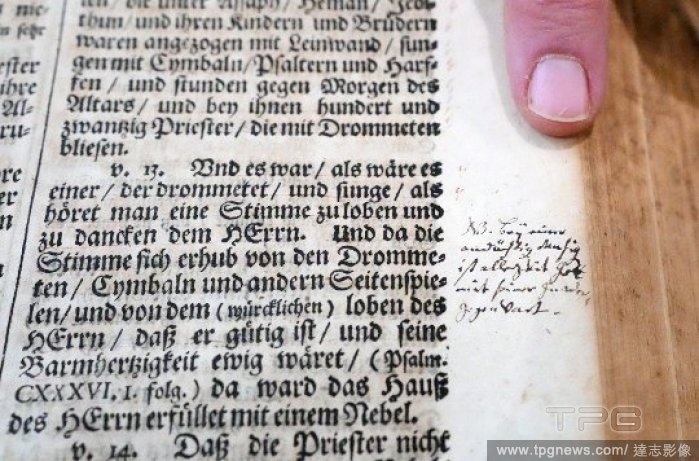 ten / die unter Assaph / Heman / Jedi=
thun / und ihren Kindern und Brüdern
waren angezogen mit Leinwand / sun=
gen mit Cymbaln / Psaltern und Harf=
fen / und stunden gegen Morgen des
Altars / und bey ihnen hundert und
zwantzig Priester / die mit Drommeten
bliesen.
v. 13. Vnd es war / als wäre es
einer / der drommetet / und sunge / als
höret man eine Stimme zu loben und
zu dancken dem HErrn. Und da die
Stimme sich erhub von den Dromme=
ten / Cymbaln und andern Seitenspie=
len / und von dem (würcklichen) loben des
HErrn / daß er gütig ist / und seine
Barmhertzigkeit ewig wäret / (Psalm.
CXXXVI. 1. folg.) da ward das Hauß
des HErrn erfüllet mit einem Nebel.
v. 14. Daß die Priester nicht
NB. Bey einer
andächtig Musiq
ist allezeit Gott
mit seiner Gnaden
Gegenwart.
TPG
www.tpgnews.com/ 達志影像